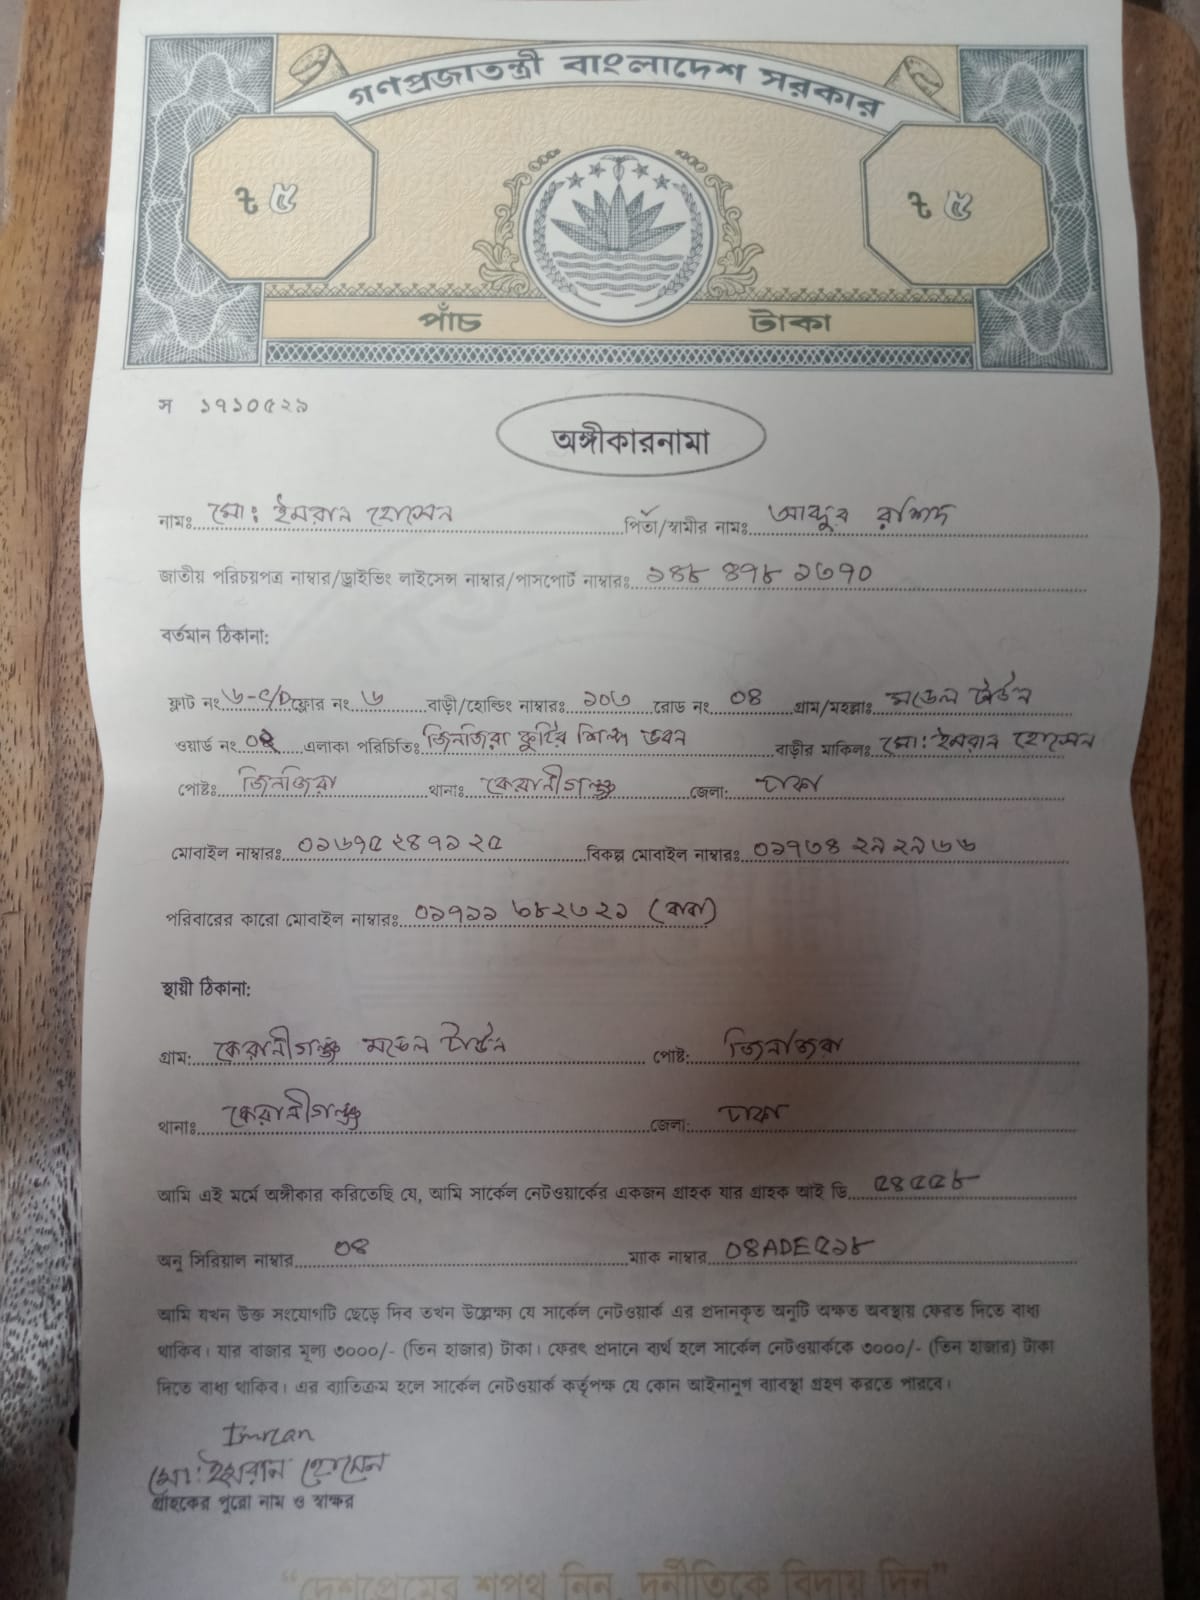 গণপ্রজাতন্ত্রী বাংলাদেশ সরকার
৳ ৫ ৳ ৫
পাঁচ টাকা
স ১৭১০৫২৯
অঙ্গীকারনামা
নামঃ মো: ইমরান হোসেন পিতা/স্বামীর নামঃ আব্দুর রশিদ
জাতীয় পরিচয়পত্র নাম্বার/ড্রাইভিং লাইসেন্স নাম্বার/পাসপোর্ট নাম্বারঃ ১৪৮ ৪৭৮ ১৩৭০
বর্তমান ঠিকানা:
ফ্লাট নং ৬-C/D ফ্লোর নং ৬ বাড়ী/হোল্ডিং নাম্বারঃ ১০৩ রোড নং ০৪ গ্রাম/মহল্লাঃ মডেল টাউন
ওয়ার্ড নং এলাকা পরিচিতিঃ জিনজিরা কুটির শিল্প ভবন বাড়ীর মাকিলঃ মো: ইমরান হোসেন
পোষ্টঃ জিনজিরা থানাঃ কেরানীগঞ্জ জেলা: ঢাকা
মোবাইল নাম্বারঃ ০১৬৭৫ ২৪৭১২৫ বিকল্প মোবাইল নাম্বারঃ ০১৭৩৪ ২৯২৯৬৬
পরিবারের কারো মোবাইল নাম্বারঃ ০১৭১১ ৬৮২৩২১ (বাবা)
স্থায়ী ঠিকানা:
গ্রাম: কেরানীগঞ্জ মডেল টাউন পোষ্ট: জিনজিরা
থানাঃ কেরানীগঞ্জ জেলা: ঢাকা
আমি এই মর্মে অঙ্গীকার করিতেছি যে, আমি সার্কেল নেটওয়ার্কের একজন গ্রাহক যার গ্রাহক আই ডি ৫৪৫৫৮
অনু সিরিয়াল নাম্বার ০৪ ম্যাক নাম্বার ০৪ADE৫১৮
আমি যখন উক্ত সংযোগটি ছেড়ে দিব তখন উল্লেক্ষ্য যে সার্কেল নেটওয়ার্ক এর প্রদানকৃত অনুটি অক্ষত অবস্থায় ফেরত দিতে বাধ্য
থাকিব। যার বাজার মূল্য ৩০০০/- (তিন হাজার) টাকা। ফেরৎ প্রদানে ব্যর্থ হলে সার্কেল নেটওয়ার্ককে ৩০০০/- (তিন হাজার) টাকা
দিতে বাধ্য থাকিব। এর ব্যাতিক্রম হলে সার্কেল নেটওয়ার্ক কর্তৃপক্ষ যে কোন আইনানুগ ব্যাবস্থা গ্রহণ করতে পারবে।
Imran
মো: ইমরান হোসেন
গ্রাহকের পুরো নাম ও স্বাক্ষর
“দেশপ্রেমের শপথ নিন, দুর্নীতিকে বিদায় দিন”